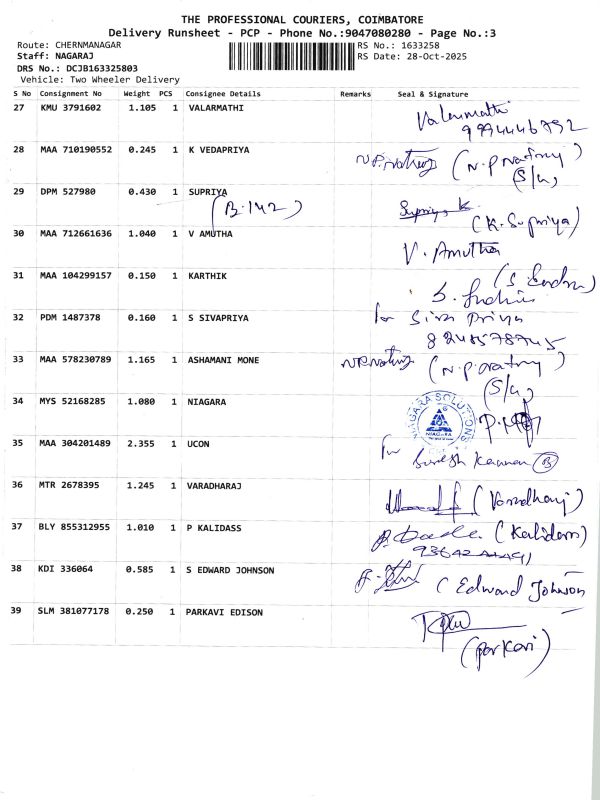 THE PROFESSIONAL COURIERS, COIMBATORE
Delivery Runsheet - PCP - Phone No.:9047080280 - Page No.:3
Route: CHERNMANAGAR
RS No.: 1633258
Staff: NAGARAJ
RS Date: 28-Oct-2025
DRS No.: DCJB163325803
Vehicle: Two Wheeler Delivery
S No Consignment No Weight PCS Consignee Details Remarks Seal & Signature
27 KMU 3791602 1.105 1 VALARMATHI Valarmathi
9994446792
28 MAA 710190552 0.245 1 K VEDAPRIYA
(S/G)
29 DPM 527980 0.430 1 SUPRIYA Supriya K (K. Supriya)
(B.142)
30 MAA 712661636 1.040 1 V AMUTHA V. Amutha
31 MAA 104299157 0.150 1 KARTHIK
32 PDM 1487378 0.160 1 S SIVAPRIYA for Siva Priya
8248578745
33 MAA 578230789 1.165 1 ASHAMANI MONE
(S/G)
34 MYS 52168285 1.080 1 NIAGARA NIAGARA SOLUTIONS
NIAGARA
35 MAA 304201489 2.355 1 UCON for Suresh Kannan (B)
36 MTR 2678395 1.245 1 VARADHARAJ (Varadharaj)
37 BLY 855312955 1.010 1 P KALIDASS (Kalidass)
38 KDI 336064 0.585 1 S EDWARD JOHNSON (Edward Johnson
39 SLM 381077178 0.250 1 PARKAVI EDISON
(parkavi)